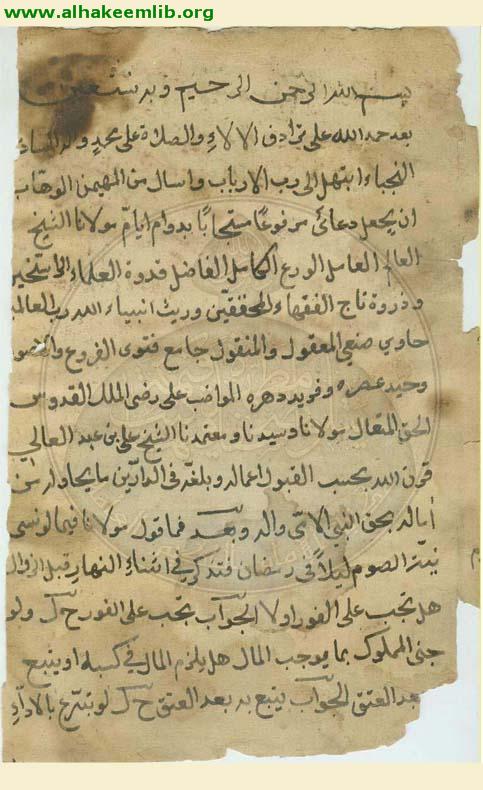 www.alhakeemlib.org
بسم الله الرحمن الرحيم وبه نستعين
بعد حمد الله على ترادف الالاء والصلاة على محمد واله
النجباء ابتهل الى رب الارباب واسال من المهيمن الوهاب
ان يجعل دعائى مرفوعًا مستجابًا بدوام ايام مولانا الشيخ
العالم العامل الورع الكامل الفاضل قدوة العلماء
وذروة تاج الفقهاء المحققين وريث انبياء الله رب العالم
حاوي صنعي المعقول والمنقول جامع فتوى الفروع
وحيد عصره وفريد دهره المواضب على رضى الملك القدوس
الحق المتعال مولانا وسيدنا ومعتمدنا الشيخ على بن عبد العالي
قرن الله بحسب القبول اعماله وبلغه فى الدارين ما يحاوله من
اماله بحق النبي الامى واله وبعد فما قول مولانا فيما لو نسى
نية الصوم ليلاً فى رمضان فتذكر فى اثناء النهار قبل الزوال
هل تجب على الفور اولا الجواب تجب على الفور ح ك ولو
جنى المملوك بما يوجب المال هل يلزم المال فى كسبه او يتبع
بعد العتق الجواب يتبع به بعد العتق ح ك لو تبرع بالاداء